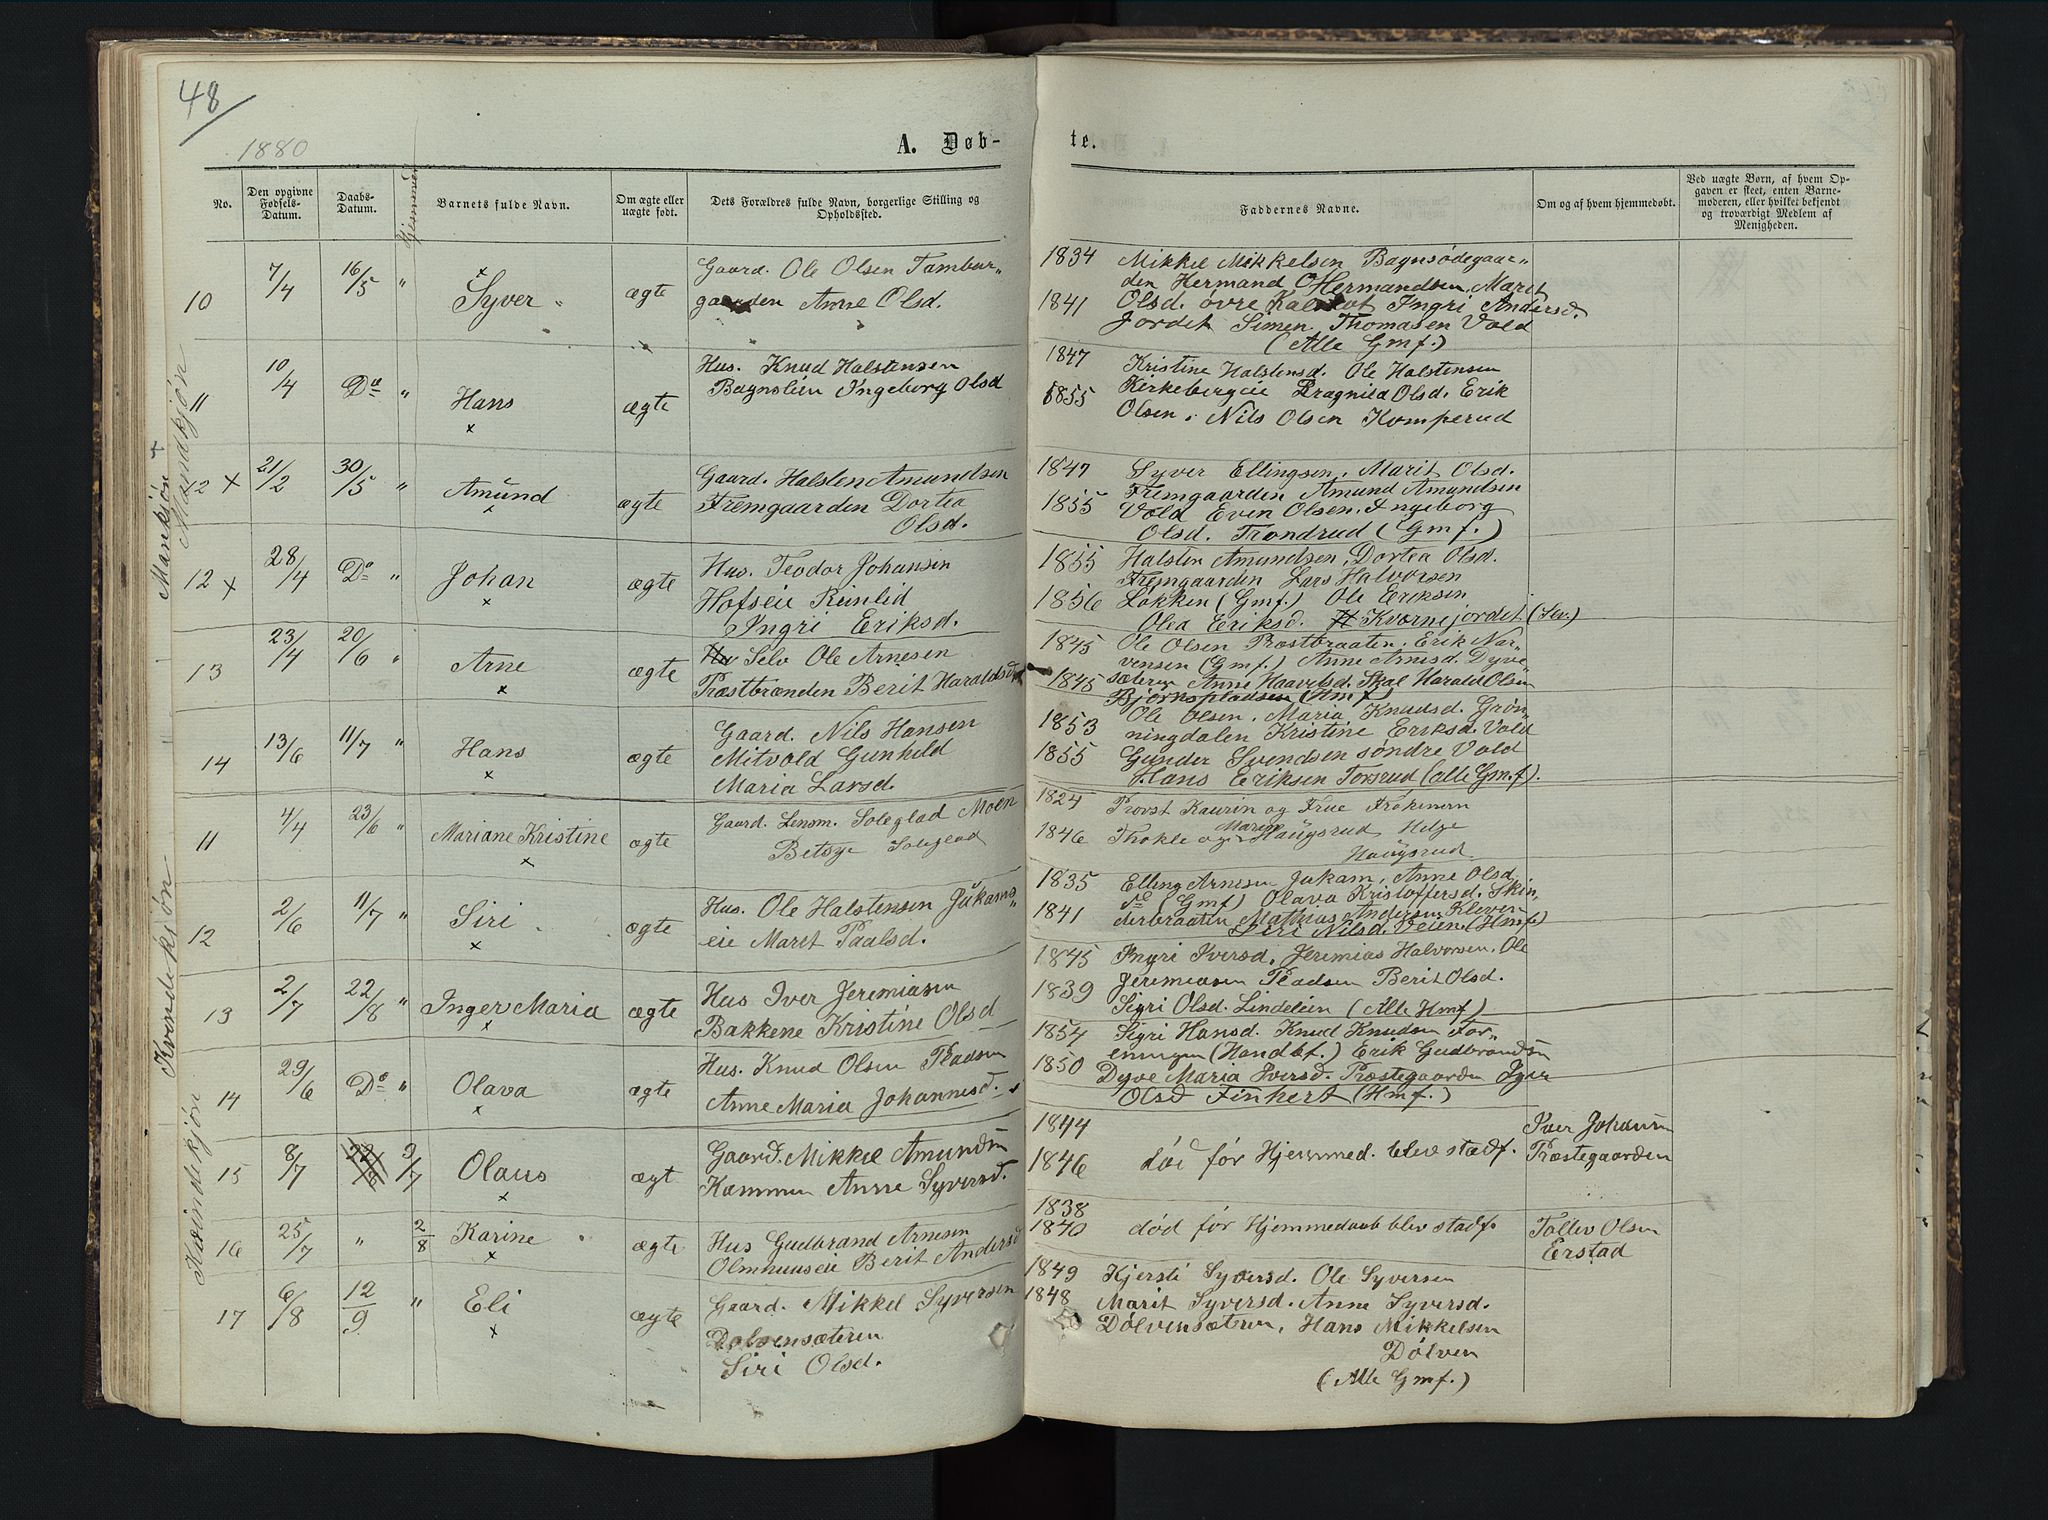 48
1880
A. Døb-
te.
No.
Den opgivne Fødsels-Datum.
Daabs-Datum.
Hjemmed
Barnets fulde Navn.
Om ægte eller uægte født.
Dets Forældres fulde Navn, borgerlige Stilling og Opholdssted.
Faddernes Navne.
Om og af hvem hjemmedøbt.
Ved uægte Børn, af hvem Opgaven er skeet, enten Barnemoderen, eller hvilket bekjendt og troværdigt Medlem af Menigheden.
Mankjøn
Mandkjøn
10 7/4 16/5 " Syver ægte
Gaard. Ole Olsen Tambur-
gaarden Anne Olsd.
1834 Mikkel Mikkelsen Bagnsødegaar-
den Hermand O Hermandsen, Marit
1841 Olsd. øvre Ingri Andersd.
Jordet Simen Thomasen Vold
(Alle Gmf.)
11 10/4 Do " Hans ægte
Hus. Knud Halstensen
Bagnslien Ingeborg Olsd
1847 Kristine Halstensd. Ole Halstensen
1855 Kirkebergeie Dragnild Olsd. Erik
Olsen. Nils Olsen Komperud
12 x 21/2 30/5 " Amund ægte
Gaard. Halsten Amundsen
Fremgaarden Dortea
Olsd.
1847 Syver Ellingsen, Marit Olsd.
Fremgaarden Amund Amundsen
1855 Vold Even Olsen. Ingeborg
Olsd. Trondrud (Gmf.)
12 x 28/4 Do " Johan ægte
Hus. Teodor Johansen
Hofseie Runlid
Ingri Eriksd.
1855 Halsten Amundsen, Dortea Olsd.
Fremgaarden Lars Halvorsen
1856 Løkken (Gmf.) Ole Eriksen
Olea Eriksd. Kvernejordet (Sv.)
13 23/4 20/6 " Arne ægte
Selv Ole Arnesen
Præstbrænden Berit Haraldsd
1845 Ole Olsen Præstbraaten, Erik Nar-
vensen (Gmf.) Anne Arnesd. Dyve
1845 sæteren Anne Haavelsd. Skal Harald Olsen
Bjørnspladsen (Hmf)
14 13/6 11/7 " Hans ægte
Gaard. Nils Hansen
Mitvold Gunhild
Maria Larsd.
1853 Ole Olsen, Maria Knudsd. Grøn-
ningdalen Kristine Eriksd. Vold
1855 Gunder Svendsen søndre Vold
Hans Eriksen Torsrud (alle Gmf).
Kvandekjøn
Kvindekjøn
11 4/4 23/6 " Mariane Kristine ægte
Gaard. Lensm. Soleglad Moen
Betsye Soleglad
1824 Provst Kaurin og Frue Frøknern
1846 Thokle og Maren Haugsrud Helge
Haugsrud
12 2/6 11/7 " Siri ægte
Hus. Ole Halstensen Jukams-
eie Marit Paalsd.
1835 Elling Arnesen Jukam, Anne Olsd.
(Gmf) Olava Kristoffersd. Skin-
1841 derbraaten Mathias Andersen Kleven
Siri Nilsd. Veien (Hmf)
13 2/7 22/8 " Inger Maria ægte
Hus Iver Jeremiasen
Bakkene Kristine Olsd
1845 Ingri Iversd, Jeremias Halvorsen, Ole
Jeremiasen Pladsen Berit Olsd.
1839 Sigri Olsd. Lindelien (Alle Hmf)
14 29/6 Do " Olava ægte
Hus. Knud Olsen Pladsen
Anne Maria Johannesd.
1854 Sigri Hansd. Knud Knudsen For-
eningen (Handbf.) Erik Gudbrandsn
1850 Dyve Maria Iversd. Præstegaarden Iver
Olsd Finhert (Hmf.)
15 8/7 9/7 Olaus ægt
Gaard. Mikkel Amundsn
Kammen Anne Syversd.
1844
1846 død før Hjemmed. blev stadf.
Iver Johansen
Præstegaarden
16 25/7 " 2/8 Karine ægte
Hus Gudbrand Arnesen
Olmhuuseie Berit Andersd
1838
1840 død før Hjemmedaab blev stadf.
Tollev Olsen
Eerstad
17 6/8 12/9 " Eli ægte
Gaard. Mikkel Syversen
Dølvensæteren
Siri Olsd.
1849 Kjersti Syversd. Ole Syversen
1848 Marit Syversd. Anne Syversd.
Dølvensæteren, Hans Mikkelsen
Dølven
(Alle Gmf.)